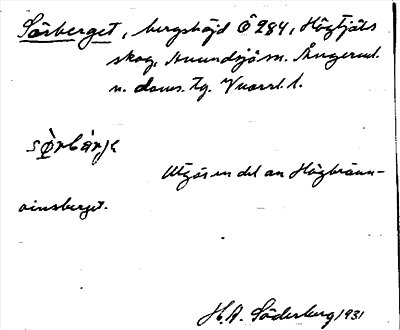 Sörberget, bergshöjd Ö 284, Högtjäls
skog, Anundsjö sn. Ångerml.
n. doms. tg. Vnorrl. l.
sọ̀rbàrjɛ
Utgör en del av Högbränn-
vinsberget.
H.A. Söderberg 1931